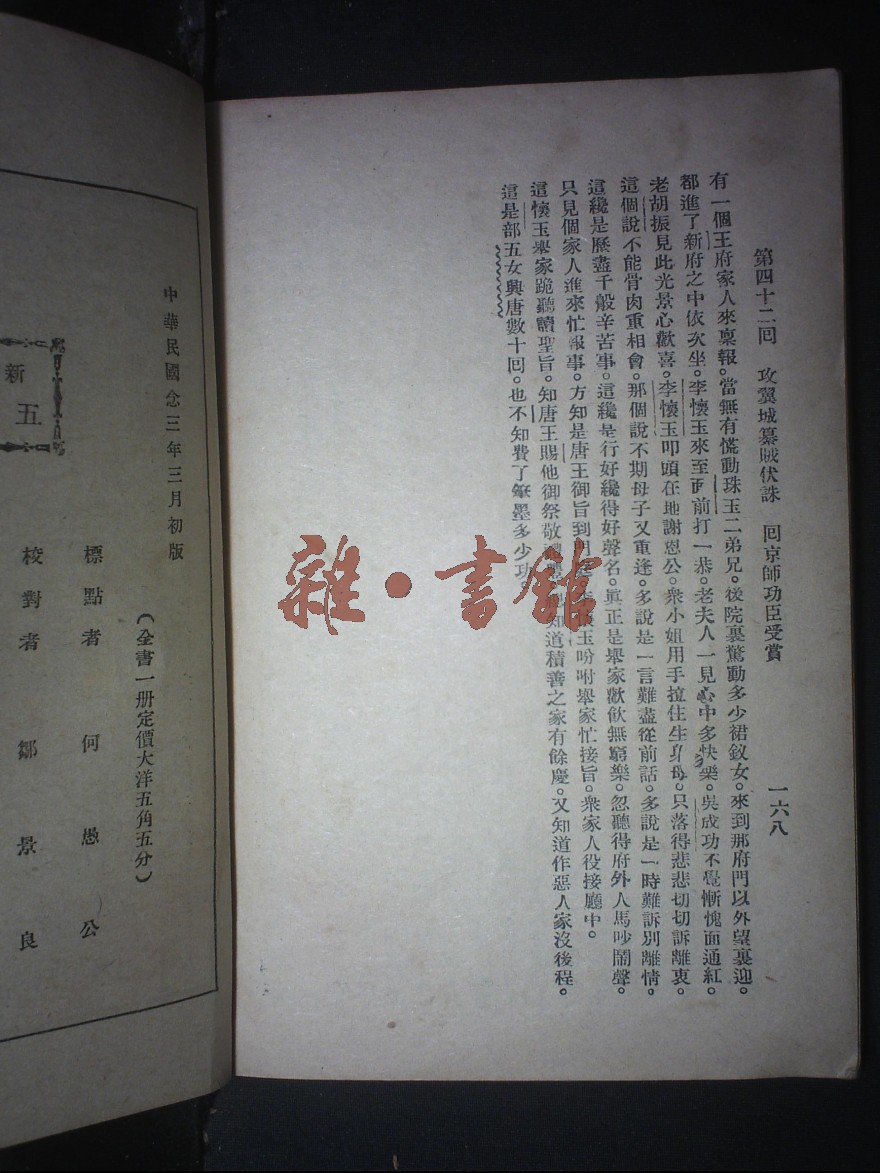 第四十二回　攻翼城纂賊伏誅　回京師功臣受賞　一六八
有一個王府家人來稟報。當無有慌動珠玉二弟兄。後院裏驚動多少裙釵女。來到那府門以外望裏迎。
都進了新府之中依次坐。李懷玉來至面前打一恭。老夫人一見心中多快樂。吳成功不覺慚愧面通紅。
老胡振見此光景心歡喜。李懷玉叩頭在地謝恩公。衆小姐用手拉住生身母。只落得悲悲切切訴離衷。
這個說不能骨肉重相會。那個說不期母子又重逢。多說是一言難盡從前話。多說是一時難訴別離情。
這纔是歷盡千般辛苦事。這纔是行好纔得好聲名。眞正是舉家歡飮無窮樂。忽聽得府外人馬吵鬧聲。
只見個家人進來忙報事。方知是唐王御旨到明李懷玉吩咐舉家忙接旨。衆家人役接廳中。
這懷玉舉家跪聽讀聖旨。知唐王賜他御祭敬知道積善之家有餘慶。又知道作惡人家沒後程。
這是部五女興唐數十回。也不知費了筆墨多少功。
雜·書館
中華民國念三年三月初版
（全書一册定價大洋五角五分）
新
五
標點者　何愚公
校對者　鄒景良